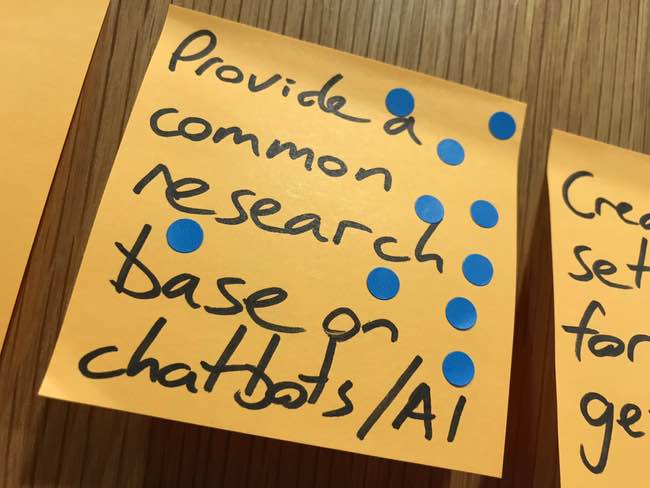 Provide a
common
research
base on
chatbots/AI
set
for